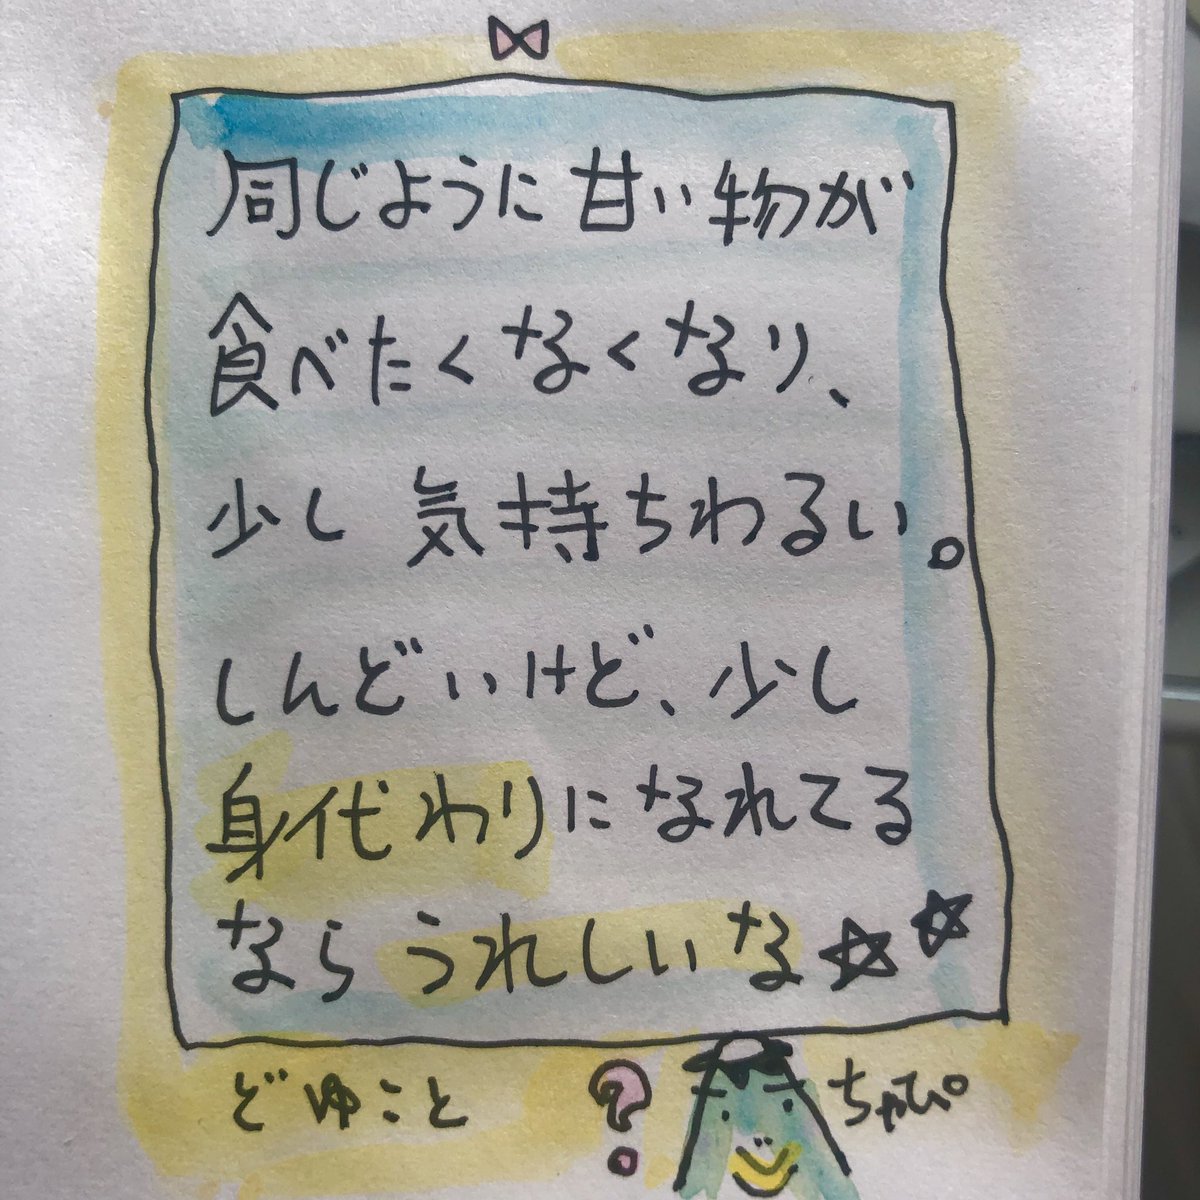 同じように甘い物が
食べたくなくなり、
少し気持ちわるい。
しんどいけど、少し
身代わりになれてる
ならうれしいな☆☆
どゆこと?
ちゃぴ